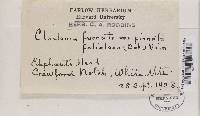 FARLOW HERBARIUM
Harvard University
HERB. C. A. ROBBINS
Cladonia furcata var pinnata
foliolosa, Del. Vain
Elephant's Head
Crawford Notch, White Mts.
28 Sept. 1928.